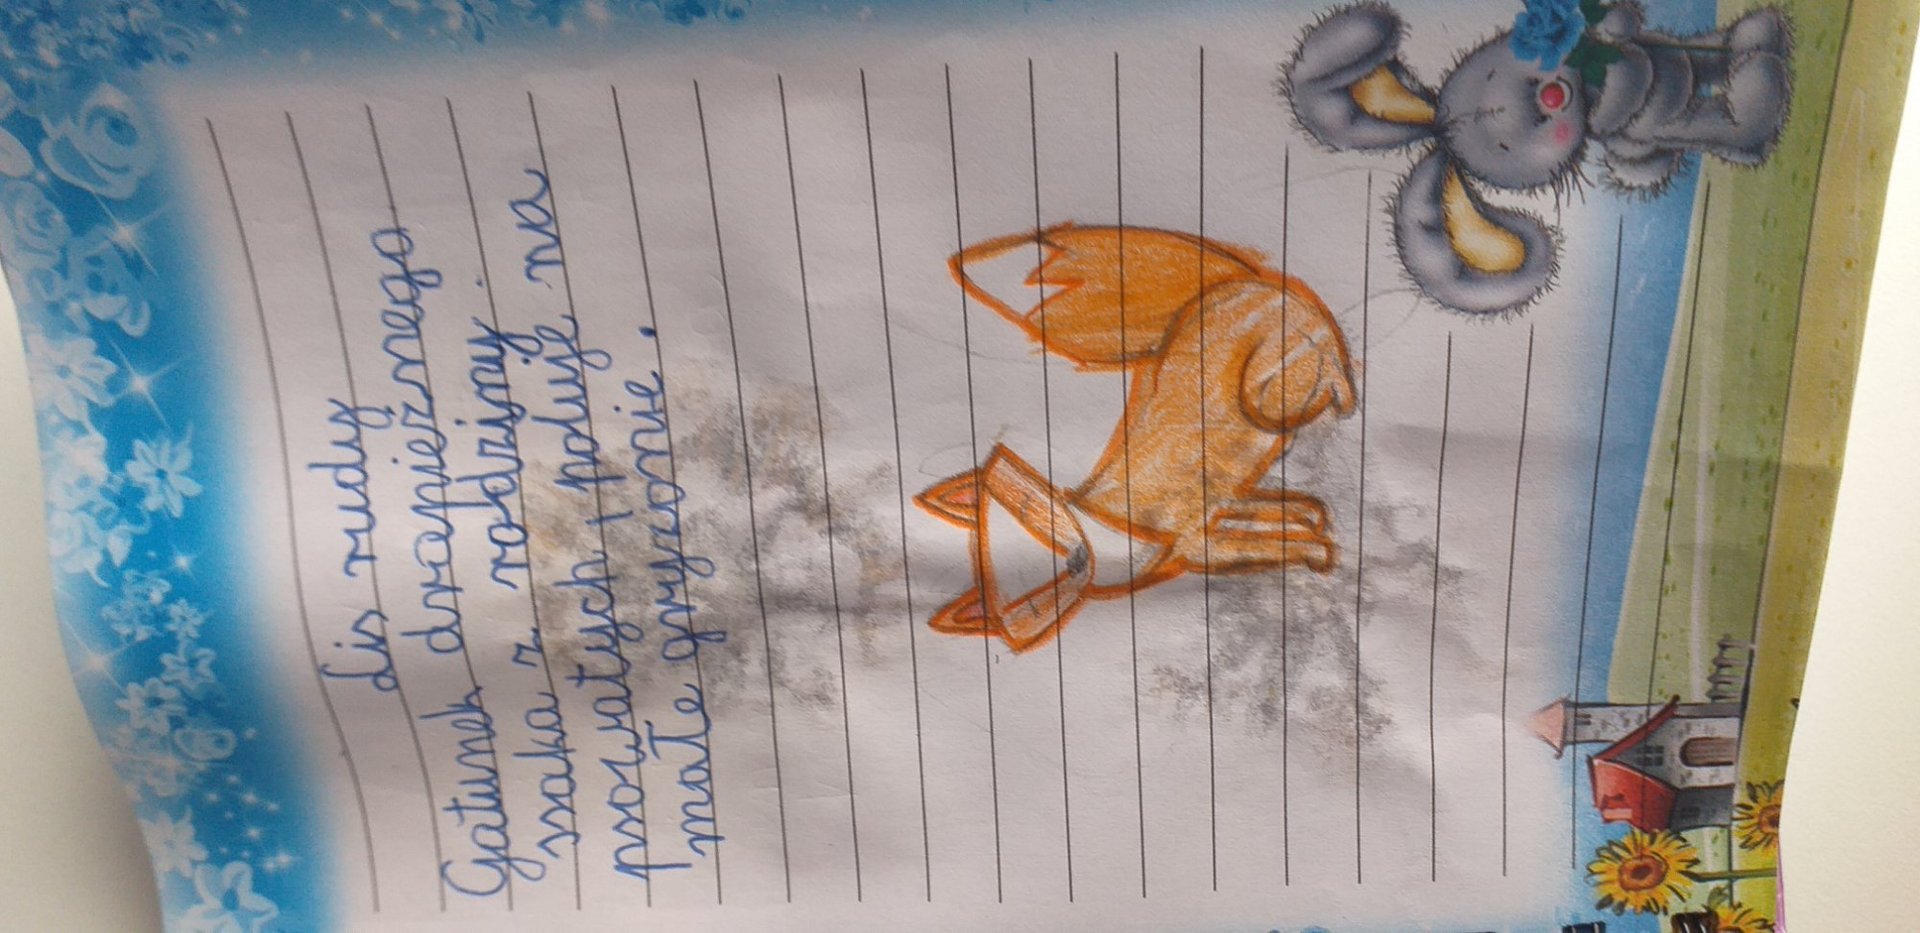 Lis rudy
Gatunek drapieżnego
ssaka z rodziny
psowatych i poluje na
małe gryzonie.